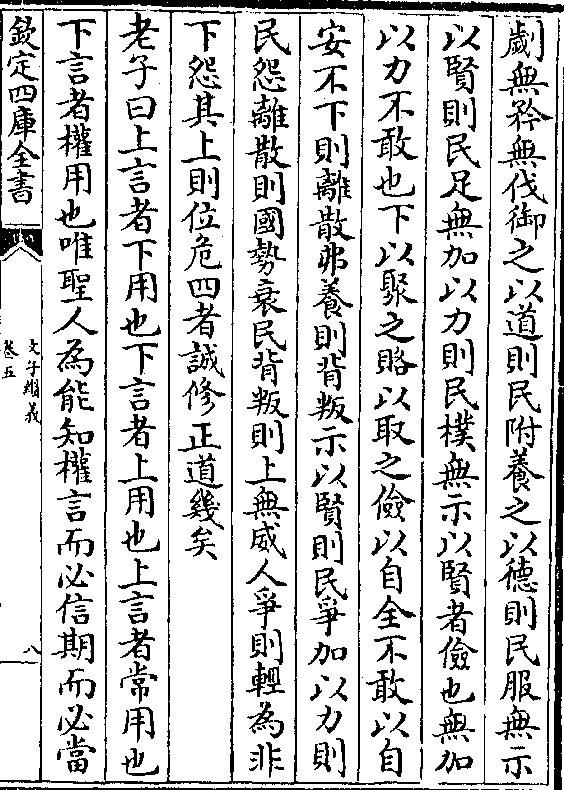 劌無矜無伐御之以道則民附養之以德則民服無示
以賢則民足無加以力則民樸無示以賢者儉也無加
以力不敢也下以聚之賂以取之儉以自全不敢以自
安不下則離散弗養則背叛示以賢則民爭加以力則
民怨離散則國勢衰民背叛則上無威人爭則輕為非
下怨其上則位危四者誠修正道幾矣
老子曰上言者下用也下言者上用也上言者常用也
下言者權用也唯聖人為能知權言而必信期而必當
欽定四庫全書
文子纘義
卷五
八